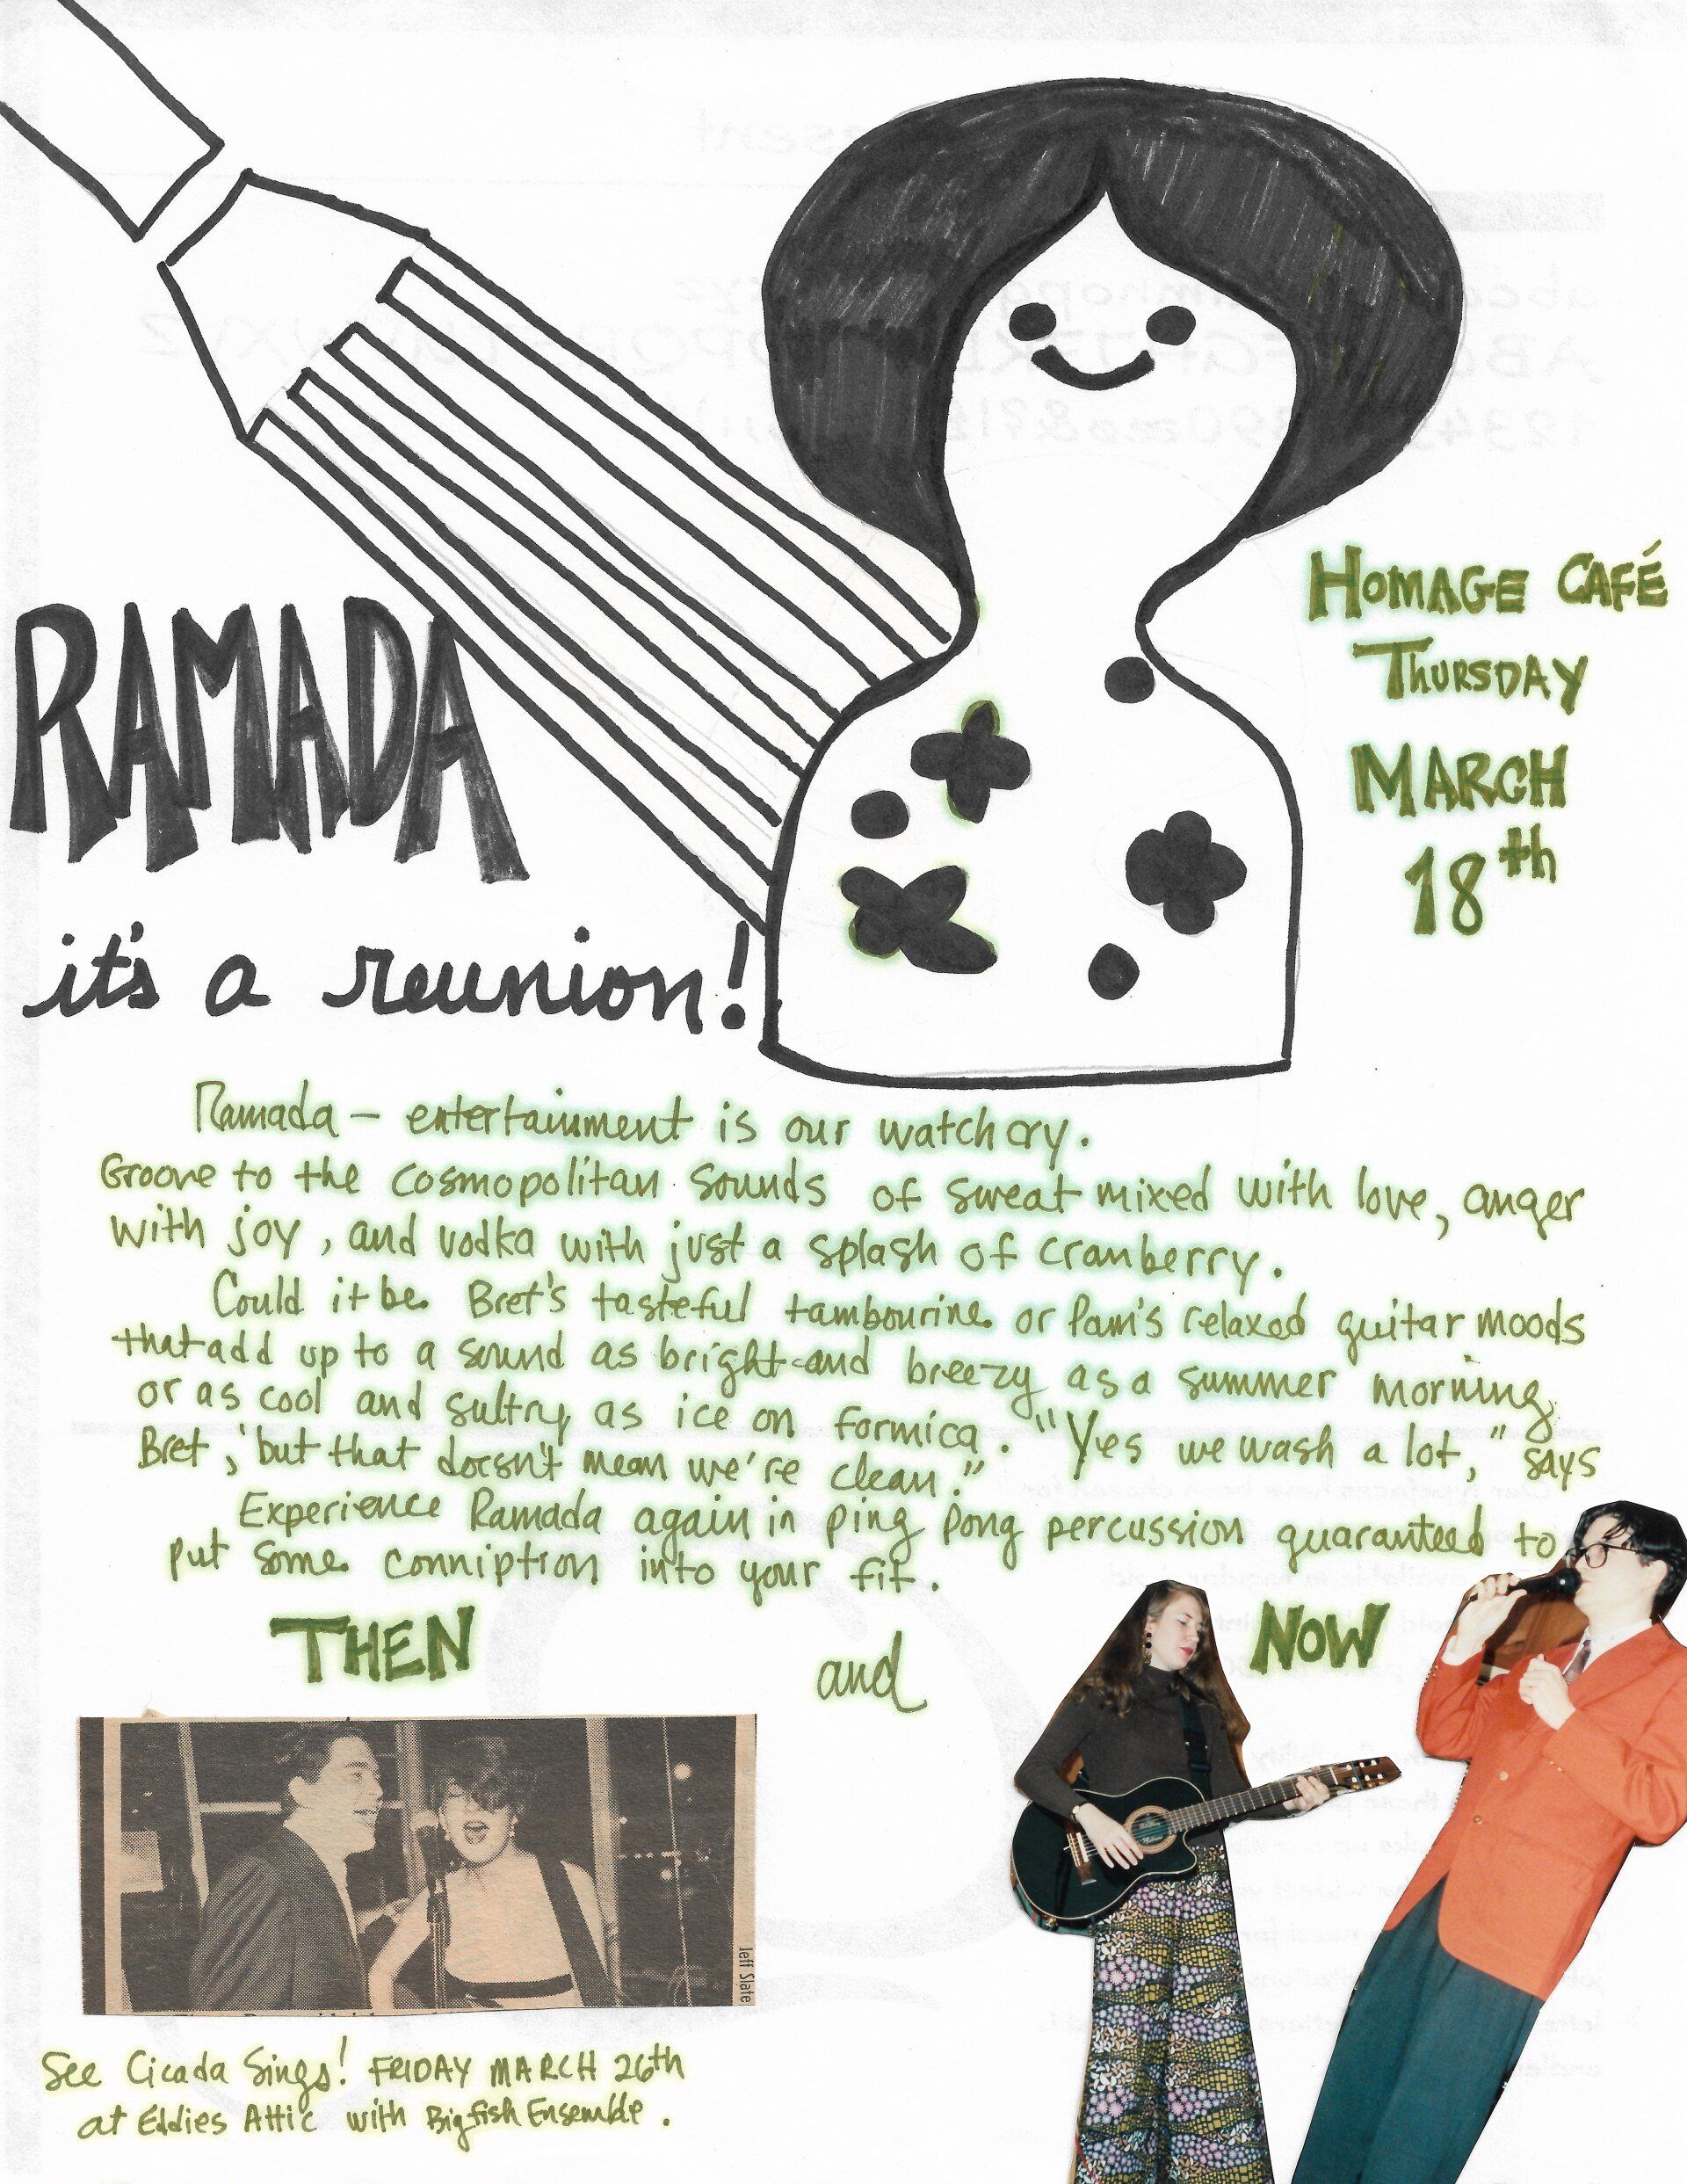 HOMAGE CAFÉ
THURSDAY
MARCH
18th
RAMADA
it's a reunion!
Ramada — entertainment is our watch cry.
Groove to the cosmopolitan sounds of sweat mixed with love, anger
with joy, and vodka with just a splash of cranberry.
Could it be Bret's tasteful tambourine or Pam's relaxed guitar moods
that add up to a sound as bright and breezy as a summer morning
or as cool and sultry as ice on formica. "Yes we wash a lot," says
Bret, "but that doesn't mean we're clean."
Experience Ramada again in ping pong percussion guaranteed to
put some conniption into your fit.
THEN and NOW
Jeff Slate
See Cicada Sings! FRIDAY MARCH 26th
at Eddies Attic with Bigfish Ensemble.